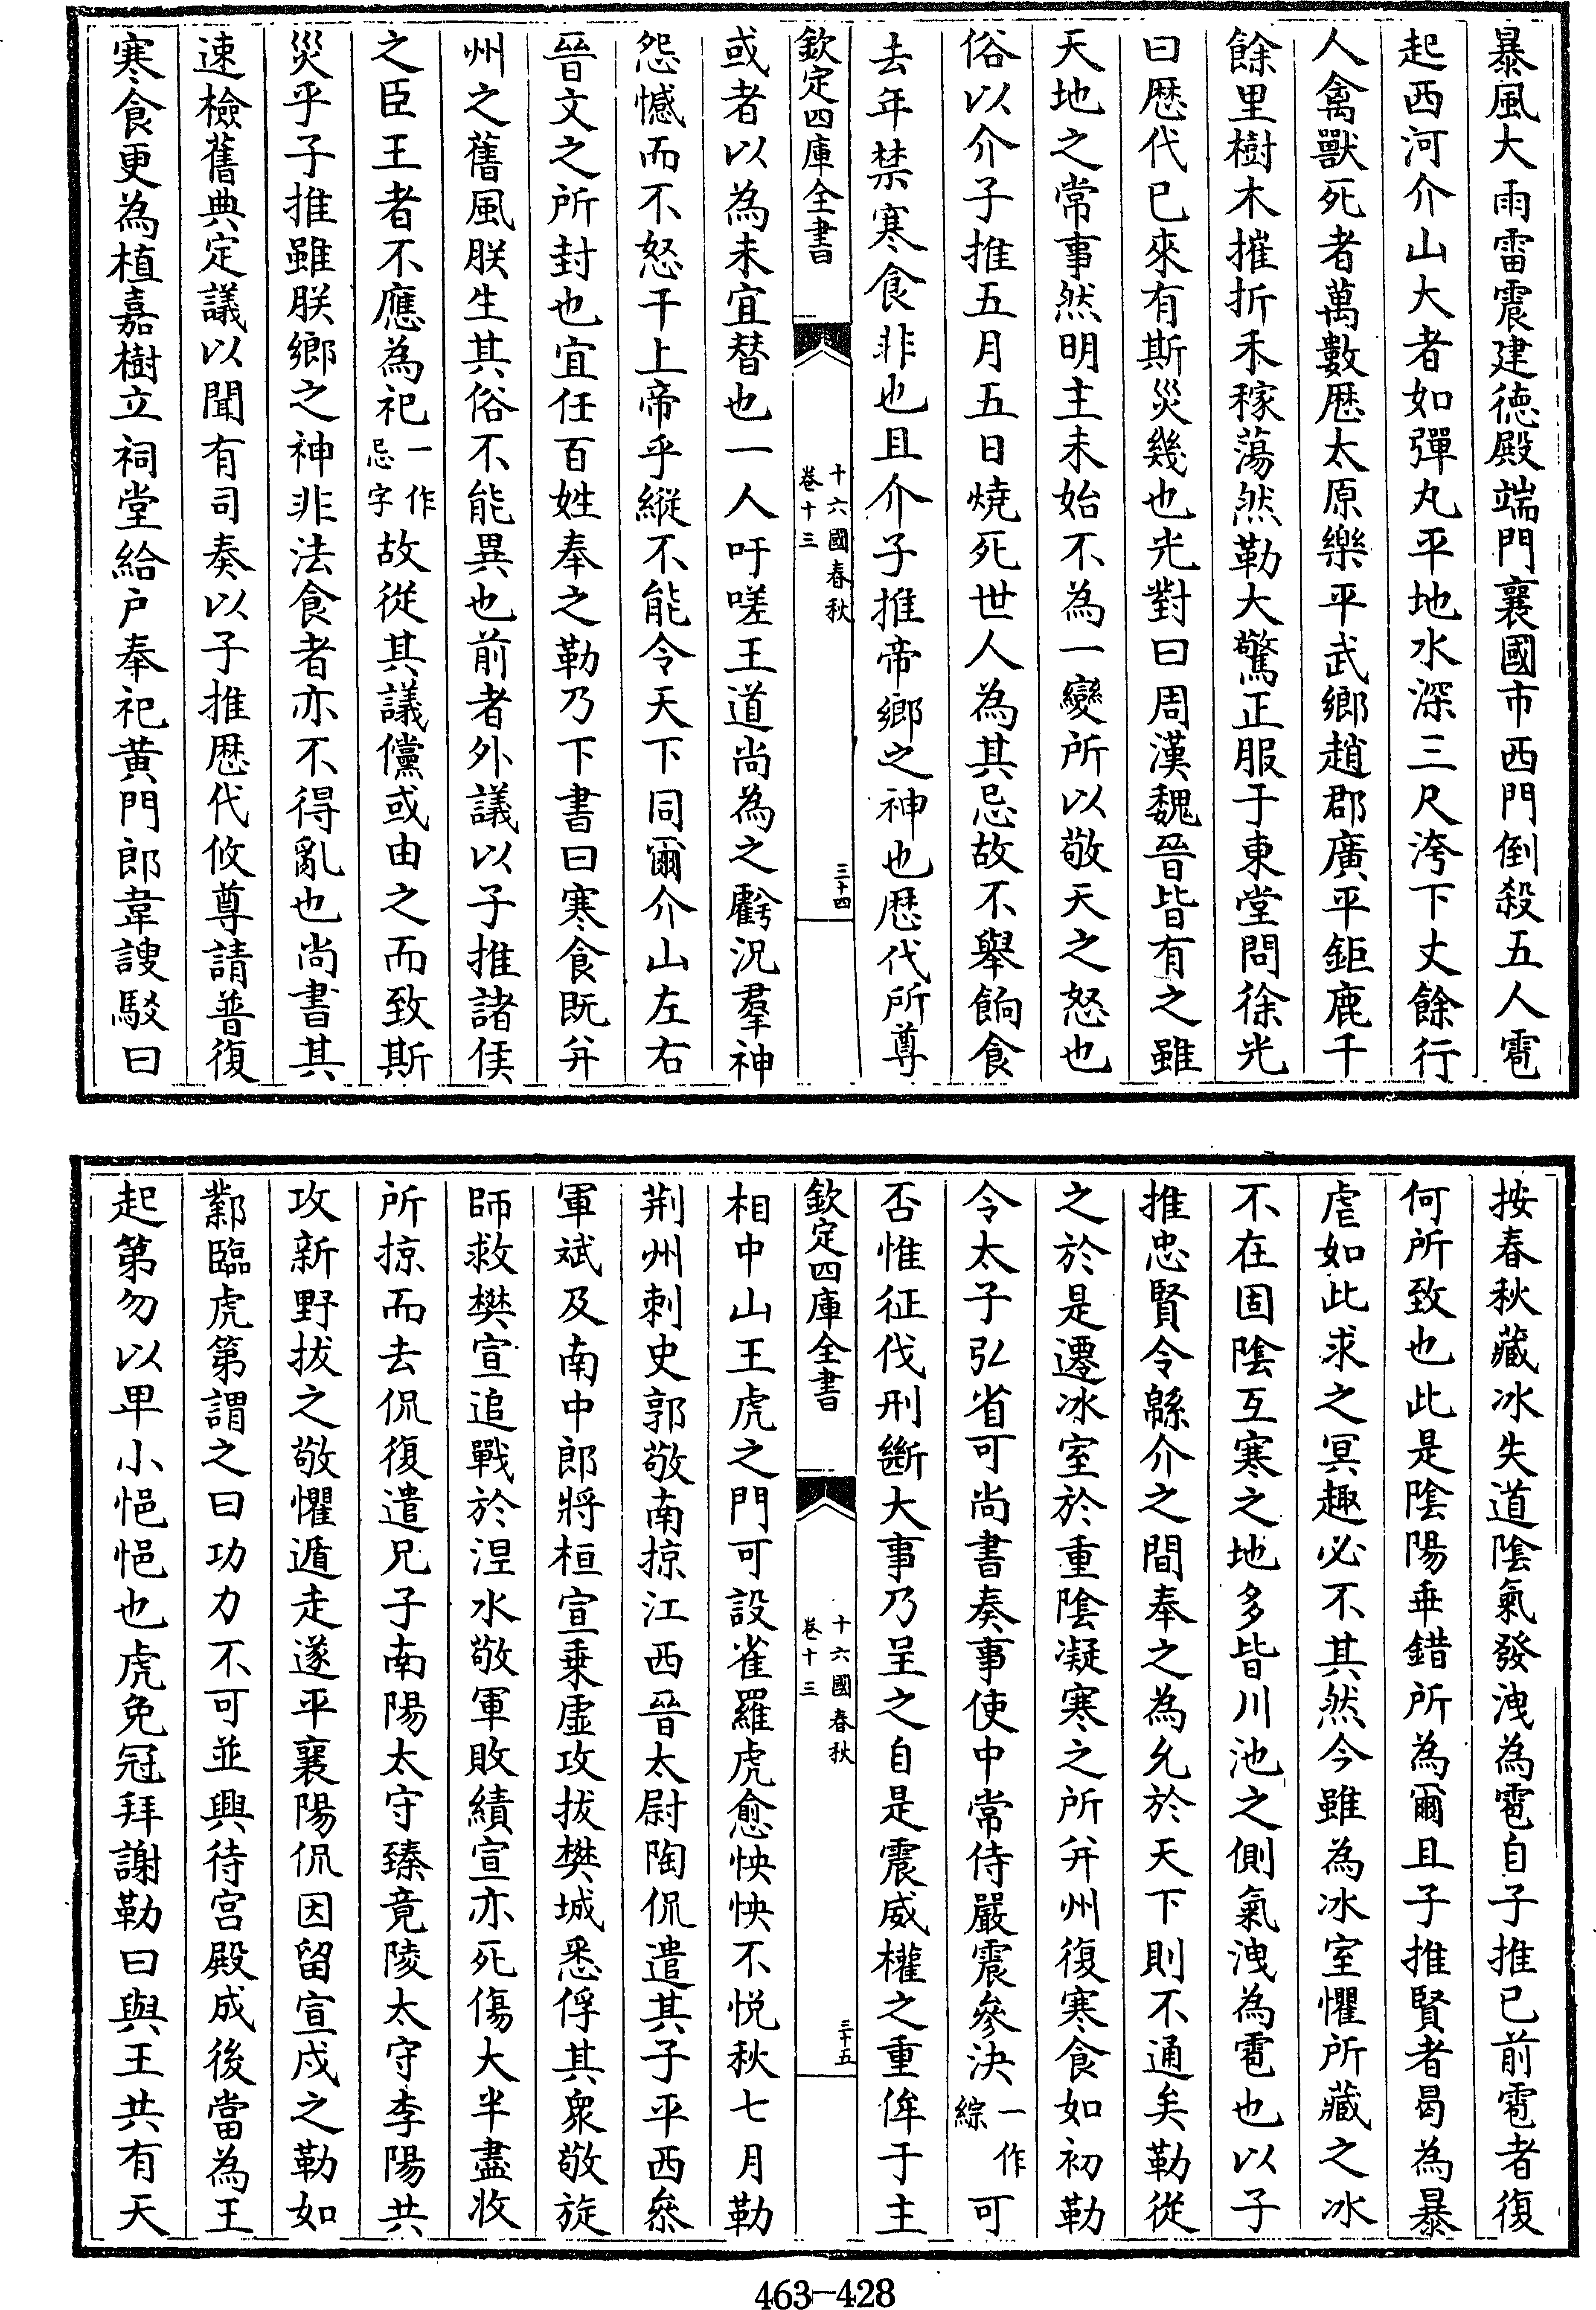 暴風大雨雷震建徳殿端門襄國市西門倒殺五人雹
起西河介山大者如彈丸平地水深三尺洿下丈餘行
人禽獸死者萬數厯太原樂平武鄉趙郡廣平鉅鹿千
餘里樹木摧折禾稼蕩然勒大驚正服于東堂問徐光
曰厯代已來有斯災幾也光對曰周漢魏晉皆有之雖
天地之常事然明主未始不為一變所以敬天之怒也
俗以介子推五月五日燒死世人為其忌故不舉餉食
去年禁寒食非也且介子推帝鄉之神也厯代所尊
欽定四庫全書
十六國春秋
卷十三
三十四
或者以為未宜替也一人吁嗟王道尚為之虧況羣神
怨憾而不怒干上帝乎縱不能令天下同爾介山左右
晉文之所封也宜任百姓奉之勒乃下書曰寒食既并
州之舊風朕生其俗不能異也前者外議以子推諸侯
之臣王者不應為祀一作忌字故從其議儻或由之而致斯
災乎子推雖朕鄉之神非法食者亦不得亂也尚書其
速檢舊典定議以聞有司奏以子推厯代攸尊請普復
寒食更為植嘉樹立祠堂給户奉祀黄門郎韋謏駁曰
按春秋藏冰失道陰氣發洩為雹自子推已前雹者復
何所致也此是陰陽乖錯所為爾且子推賢者曷為暴
虐如此求之冥趣必不其然今雖為冰室懼所藏之冰
不在固陰互寒之地多皆川池之側氣洩為雹也以子
推忠賢令緜介之間奉之為允於天下則不通矣勒從
之於是遷冰室於重陰凝寒之所并州復寒食如初勒
令太子弘省可尚書奏事使中常侍嚴震參決一作綜可
否惟征伐刑斷大事乃呈之自是震威權之重侔于主
欽定四庫全書
十六國春秋
卷十三
三十五
相中山王虎之門可設雀羅虎愈怏怏不悦秋七月勒
荆州刺史郭敬南掠江西晉太尉陶侃遣其子平西叅
軍斌及南中郎將桓宣乗虛攻拔樊城悉俘其衆敬旋
師救樊宣追戰於涅水敬軍敗績宣亦死傷大半盡收
所掠而去侃復遣兄子南陽太守臻竟陵太守李陽共
攻新野拔之敬懼遁走遂平襄陽侃因留宣戍之勒如
鄴臨虎第謂之曰功力不可並興待宫殿成後當為王
起第勿以卑小悒悒也虎免冠拜謝勒曰與王共有天
463-428